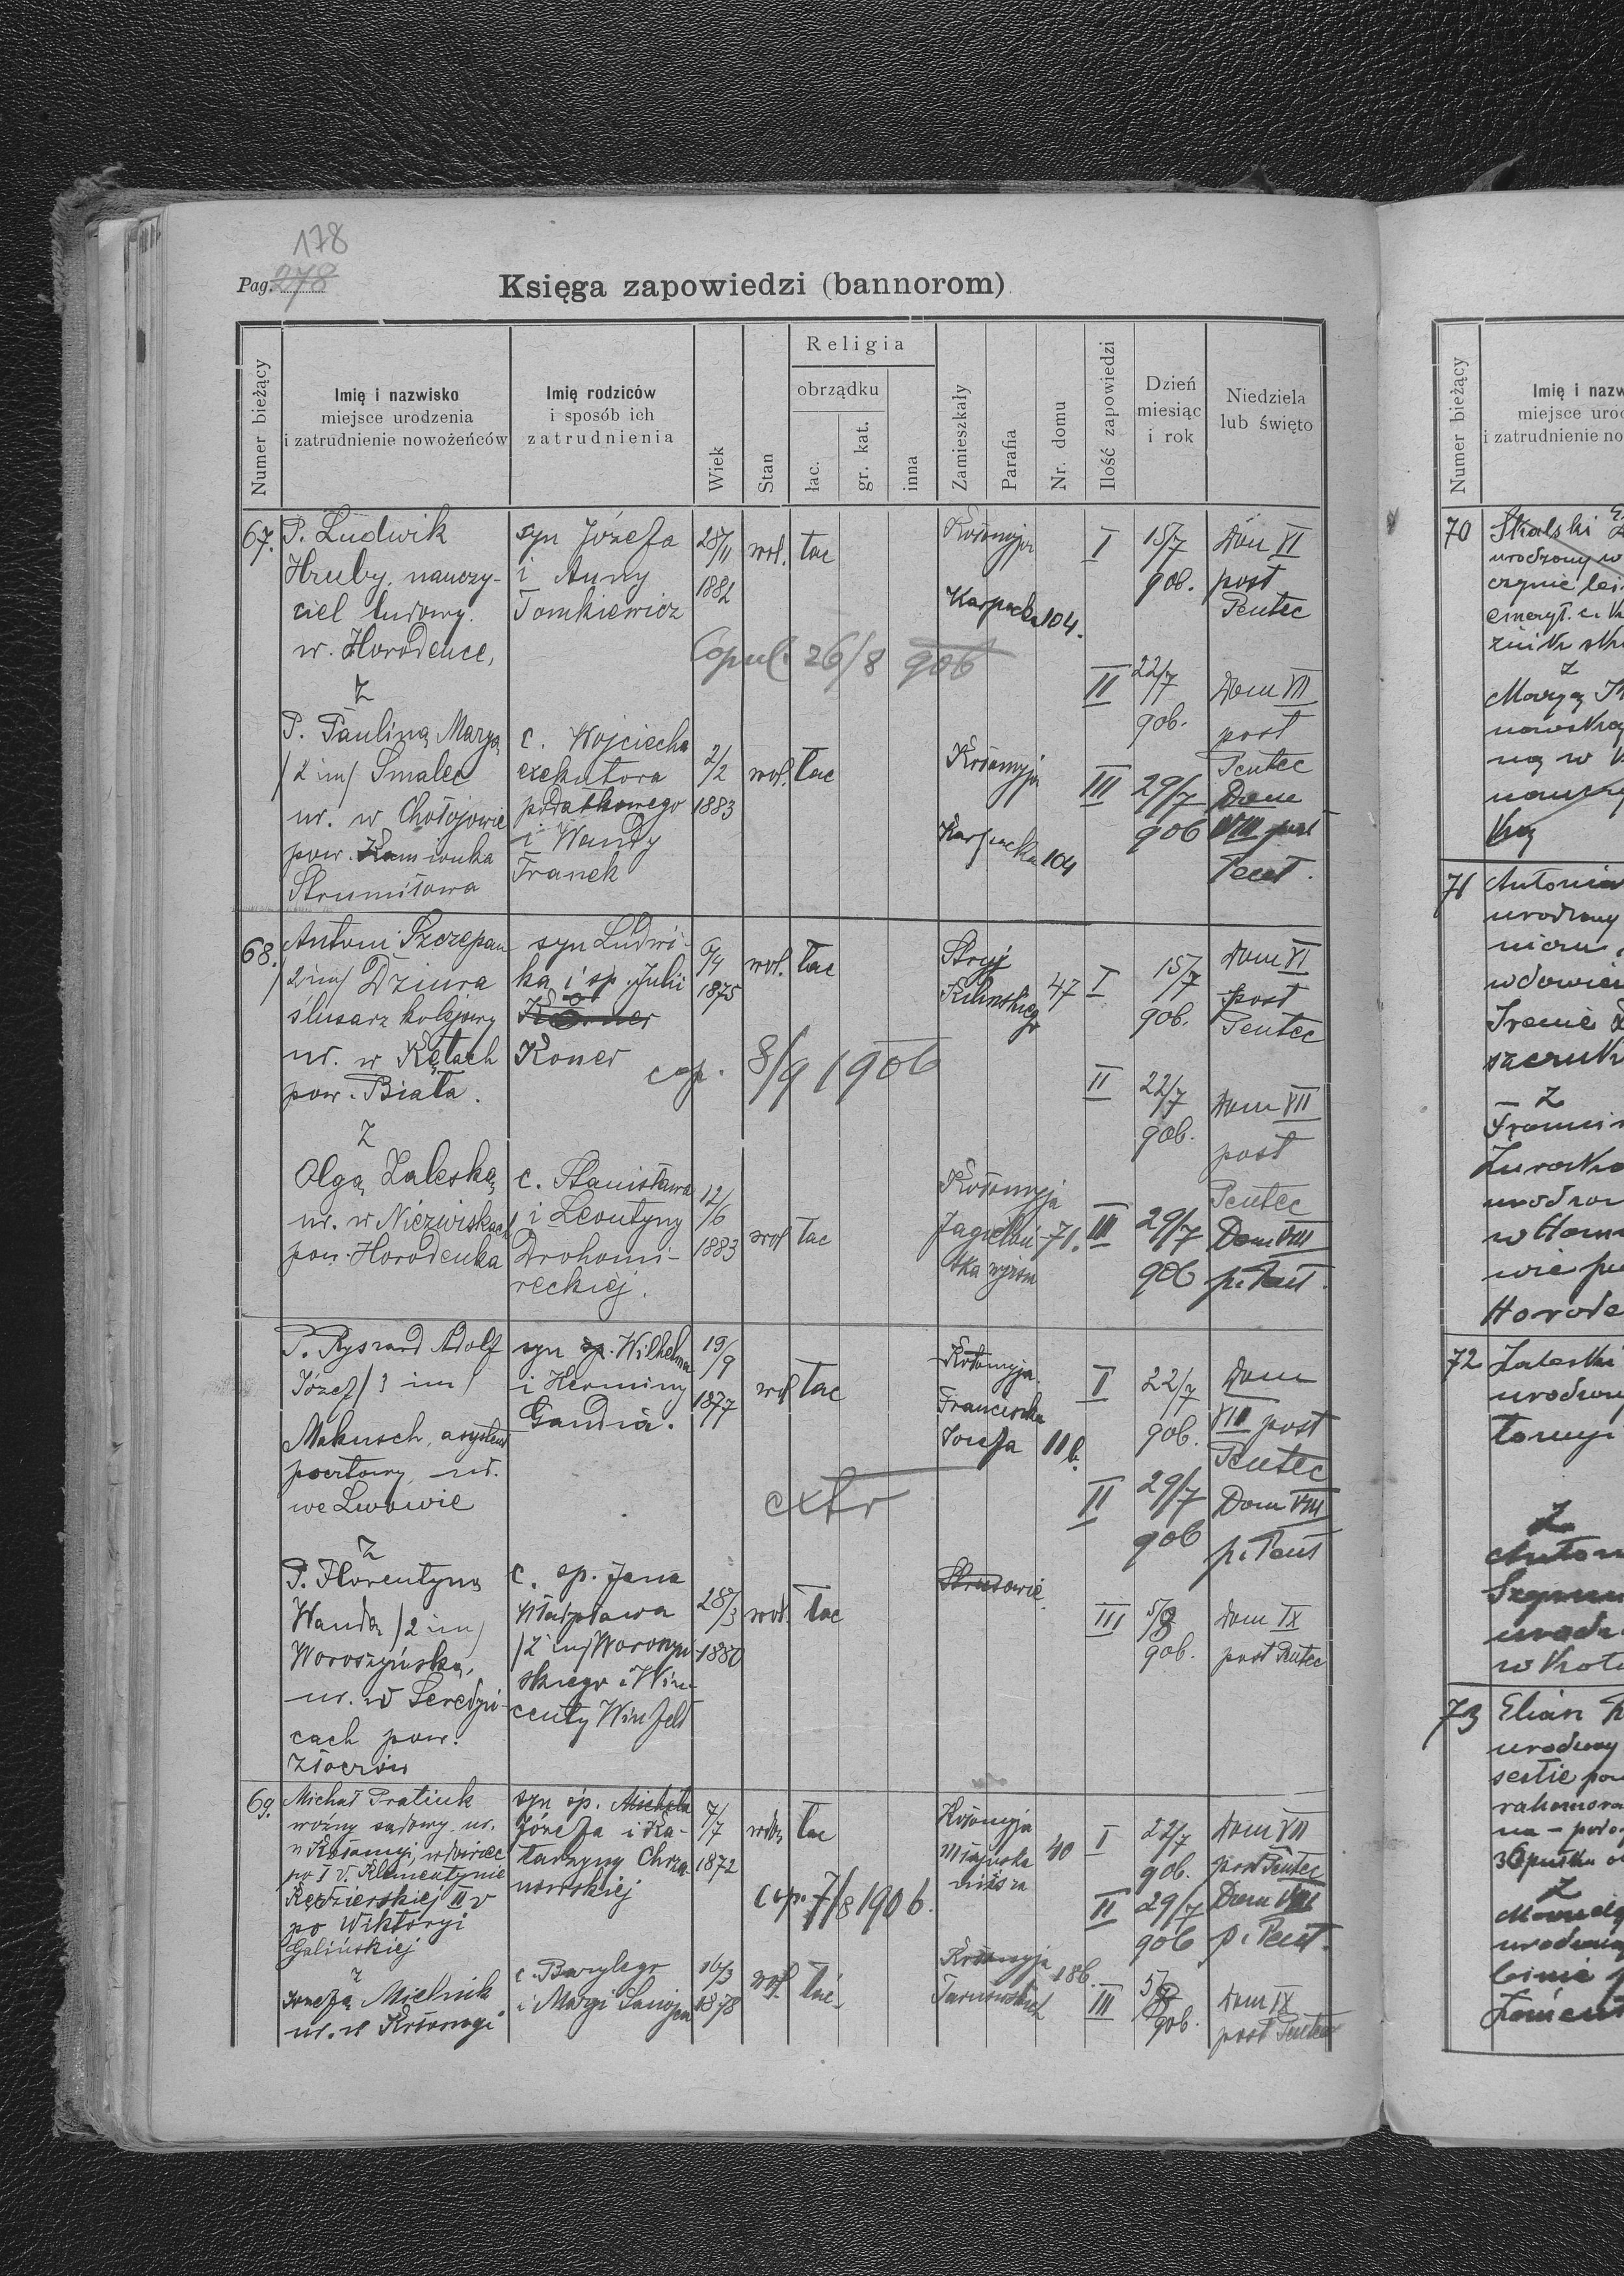 178
Pag. 278
Księga zapowiedzi (bannorom)
Numer bieżący
Imię i nazwisko
miejsce urodzenia
i zatrudnienie nowożeńców
Imię rodziców
i sposób ich
zatrudnienia
Wiek
Stan
Religia
obrządku
łac.
gr. kat.
inna
Zamieszkały
Parafia
Nr. domu
Ilość zapowiedzi
Dzień
miesiąc
i rok
Niedziela
lub święto
67. P. Ludwik
Hruby, nauczy-
ciel ludowy
w. Horodence,
z
P. Pauliną Maryą
/2 im/ Smalec
ur. w Chołojowie
pow. Kamionka
Strumiłowa
syn Józefa
i Anny
Tomkiewicz
28/11
1882
wol.
łac
Kołomyja
Karpacka 104.
Copul. 26/8 906
c. Wojciecha
exekutora
podatkowego
i Wandy
Franek
2/2
1883
wol.
łac
Kołomyja
Karpacka 104
I 15/7 906. Dom VI post Pentec
II 22/7 906. Dom VII post Pentec
III 29/7 906 Dom VIII post Pent.
68. Antoni Szczepan
/2 im/ Dziura
ślusarz kolejowy
ur. w Kętach
pow. Biała.
z
Olgą Zaleską
ur. w Niezwiskach
pow. Horodenka
syn Ludwi-
ka i śp. Julii
Koner
6/4
1875
wol.
łac
Stryj
Kilińskiego
47
cop. 8/9 1906
c. Stanisława
i Leontyny
Drohomi-
reckiej.
12/6
1883
wol
łac
Kołomyja
Jagielloń-
ska
71.
I 15/7 906. Dom VI post Pentec
II 22/7 906. Dom VII post Pentec
III 29/7 906 Dom VIII p. Pent.
P. Ryszard Adolf
Józef /3 im/
Makusch, asystent
pocztowy, ur.
we Lwowie
z
P. Florentyną
Wandą /2 im/
Woroszyńską,
ur. w
cach pow.
Złoczów
syn śp. Wilhelma
i Herminy
Gandia.
19/9
1877
wol
łac
Kołomyja.
Franciszka
Józefa 11 b.
extr
c. śp. Jana
Władysława
/2 im/
skiego i Win-
centy Winfeld
28/3
1880
wol.
łac
I 22/7 906. Dom VII post Pentec
II 29/7 906 Dom VIII p. Pent
III 5/8 906. Dom IX post Pentec
69. Michał Pratiuk
woźny sądowy ur.
w Kołomyi, wdowiec
po I v. Klementynie
Kędzierskiej II v
po Wiktoryi
Golińskiej
z
Józefą Mielnik
ur. w Kołomyi
syn śp. Michała
Józefa i Ka-
tarzyny Chrza-
nowskiej
7/7
1872
wdow
łac
Kołomyja
40
cop. 7/8 1906.
c. Bazylego
i Maryi
16/3
1878
wol.
łac.
Kołomyja
186.
I 22/7 906. Dom VII post Pentec
II 29/7 906 Dom VIII p. Pent.
III 5/8 906. Dom IX post Pentec
Numer bieżący
Imię i nazw
miejsce uroc
i zatrudnienie no
70 Skalski
urodzony w
emeryt. c. k
z
Maryą
nowską
ną w
ką
71 Antoni
urodzony
wdowiec
Irenie
z
72 Zaleski
urodzony
z
73 Elian
urodzony
z